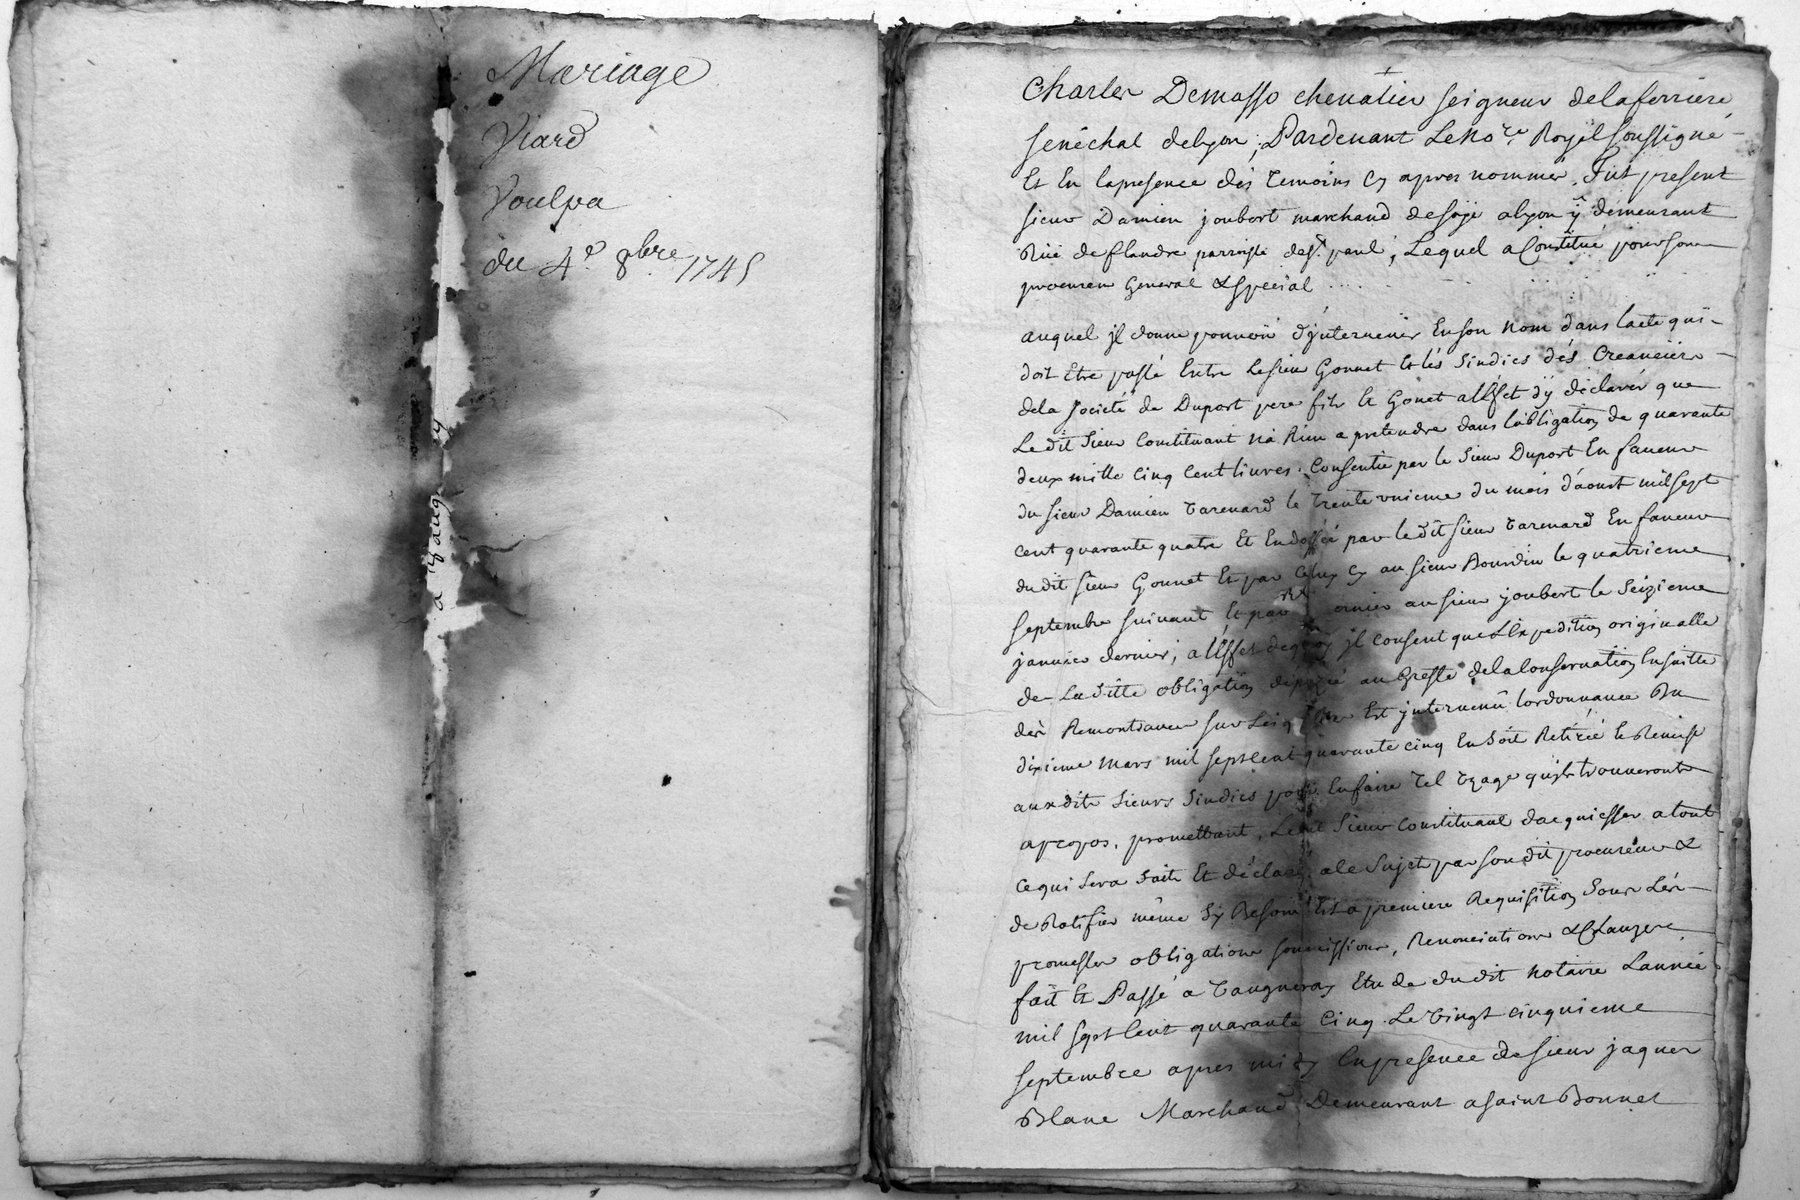 Mariage
Viard
Voulpa
du 4e 8bre 1745
a Vaug
Charles Demasso chevalier seigneur delaferriere
senéchal delyon, Pardevant Le Nore Royal soussigné
Et En lapresence dés temoins Cy apres nommés, Fut present
sieur Damien joubert marchand desoÿe alyon ÿ demeurant
Rüe deflandre parroisse de st. paul, Lequel a Constitué pour son
procureur General & special
auquel jl donne pouvoir d'jntervenir En son Nom dans lacte qui
doit Etre passé Entre Le sieur Gonnet Et lés sindics dés Creanciers
dela société de Duport pere fils & Gonet a l'effet d'ÿ déclarer que
Le dit sieur Constituant n'a Rien a pretendre dans l'obligation de quarante
deux mille cinq cent livres. Consentie par le sieur Duport En faveur
du sieur Damien Tarenard le trente unieme du mois d'aoust mil sept
cent quarante quatre Et Endossée par le dit sieur Tarenard En faveur
du dit sieur Gonnet Et par Celuy Cy au sieur Bourdin le quatrieme
septembre suivant Et par ernier au sieur joubert le seizieme
janvier dernier, a l'Effet dequoy jl consent que L'Expedition originalle
de La ditte obligation deposée au Greffe dela Conservation En suitte
dés Remontrances sur Lesq Est jntervenü l'ordonnance Du
dixieme mars mil sept Cent quarante cinq En soit Retirée & Remise
auxdits sieurs sindics pour En faire tel Usage qu'jls trouveront
apropos, promettant, Ledit sieur Constituant d'acquiesser a tout
ce qui sera fait Et déclaré a le sujet par son dit procureur &
de Ratifier même sy Besoin Est a premiere Requisition sous Lés
promesses obligations soumissions, Renonciations & Clauzes,
fait Et Passé a Vaugneray Etude du dit notaire L'année
mil sept Cent quarante cinq Le Vingt cinquieme
septembre apres midy En presence de sieur jaques
Blanc Marchand Demeurant a saint Bonnet